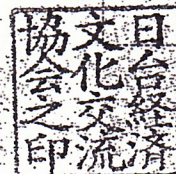 日台経済
文化交流
協会之印